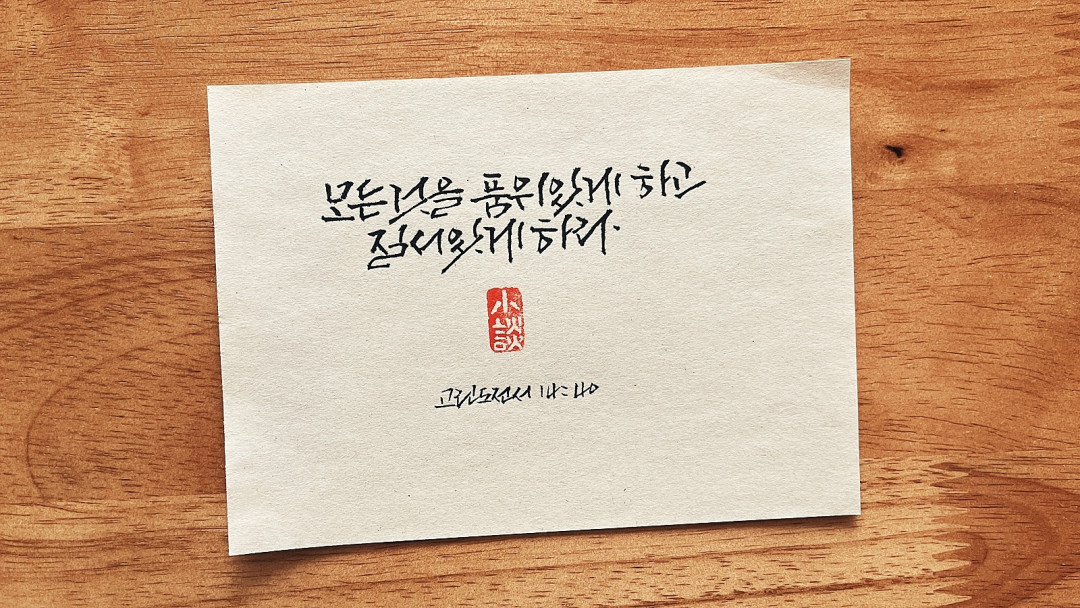 모든것을 품위있게 하고
질서있게 하라.
小
談
고린도전서 14:40